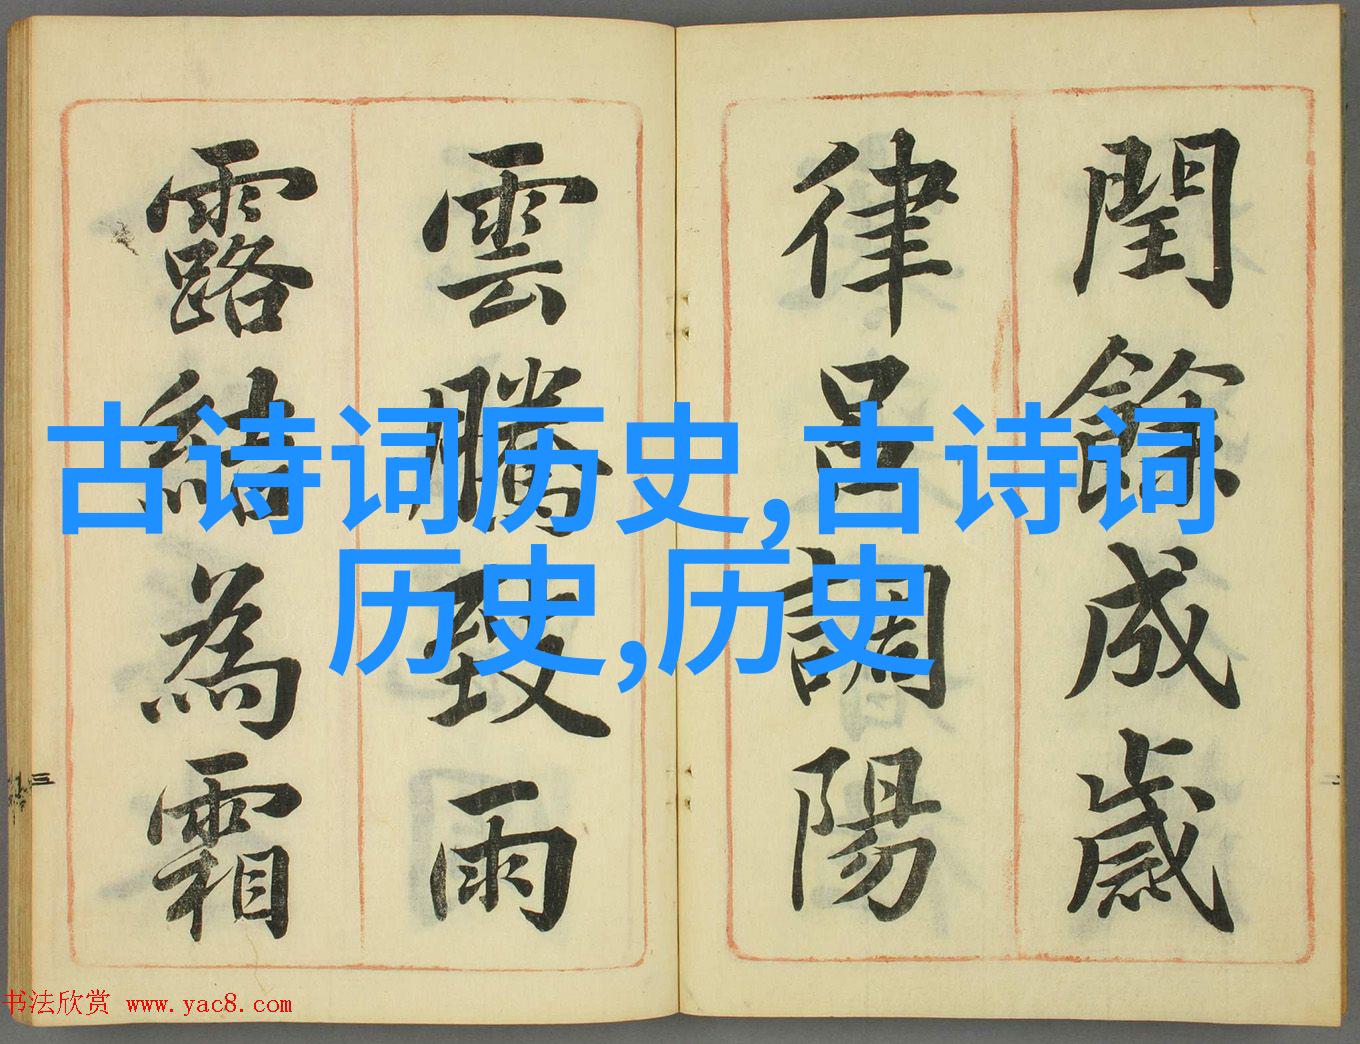 閏餘成歲
律呂調陽
雲騰致雨
露結為霜
古诗词历史,古诗词
历史,历史
三
二
书法欣赏 www.yac8.com